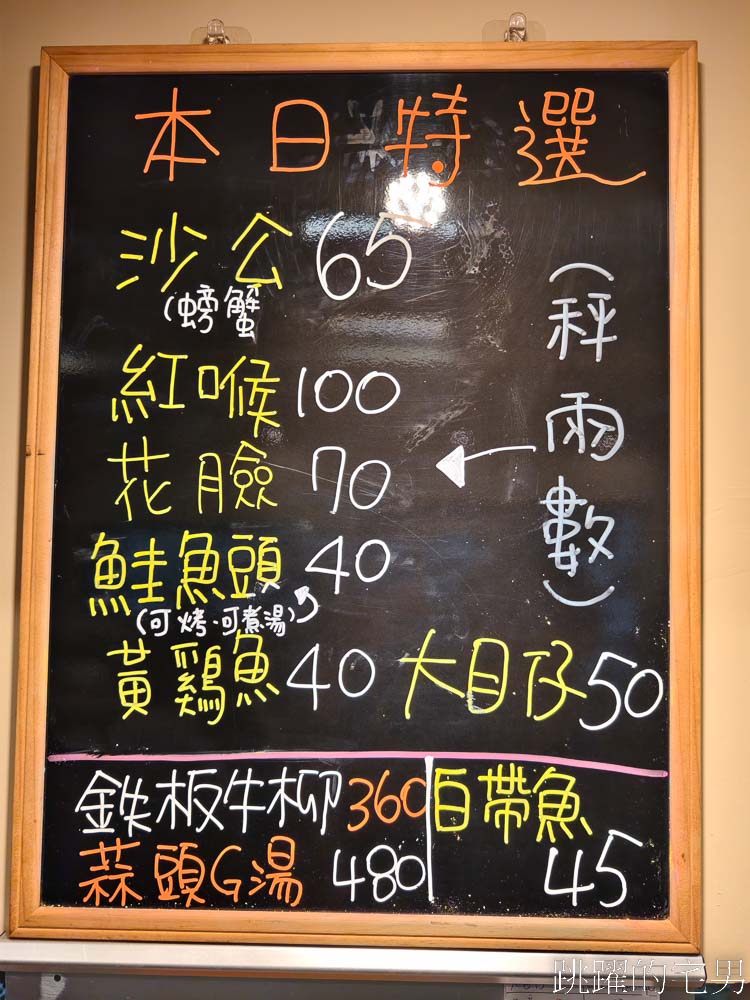 本日特選
沙公 65
(螃蟹
紅喉 100
花臉 70
鮭魚頭 40
(可烤·可煮湯)
黃鷄魚 40
大目仔 50
(秤兩數)
鉄板牛柳 360
蒜頭G湯 480
白帶魚
45
跳躍的宅男